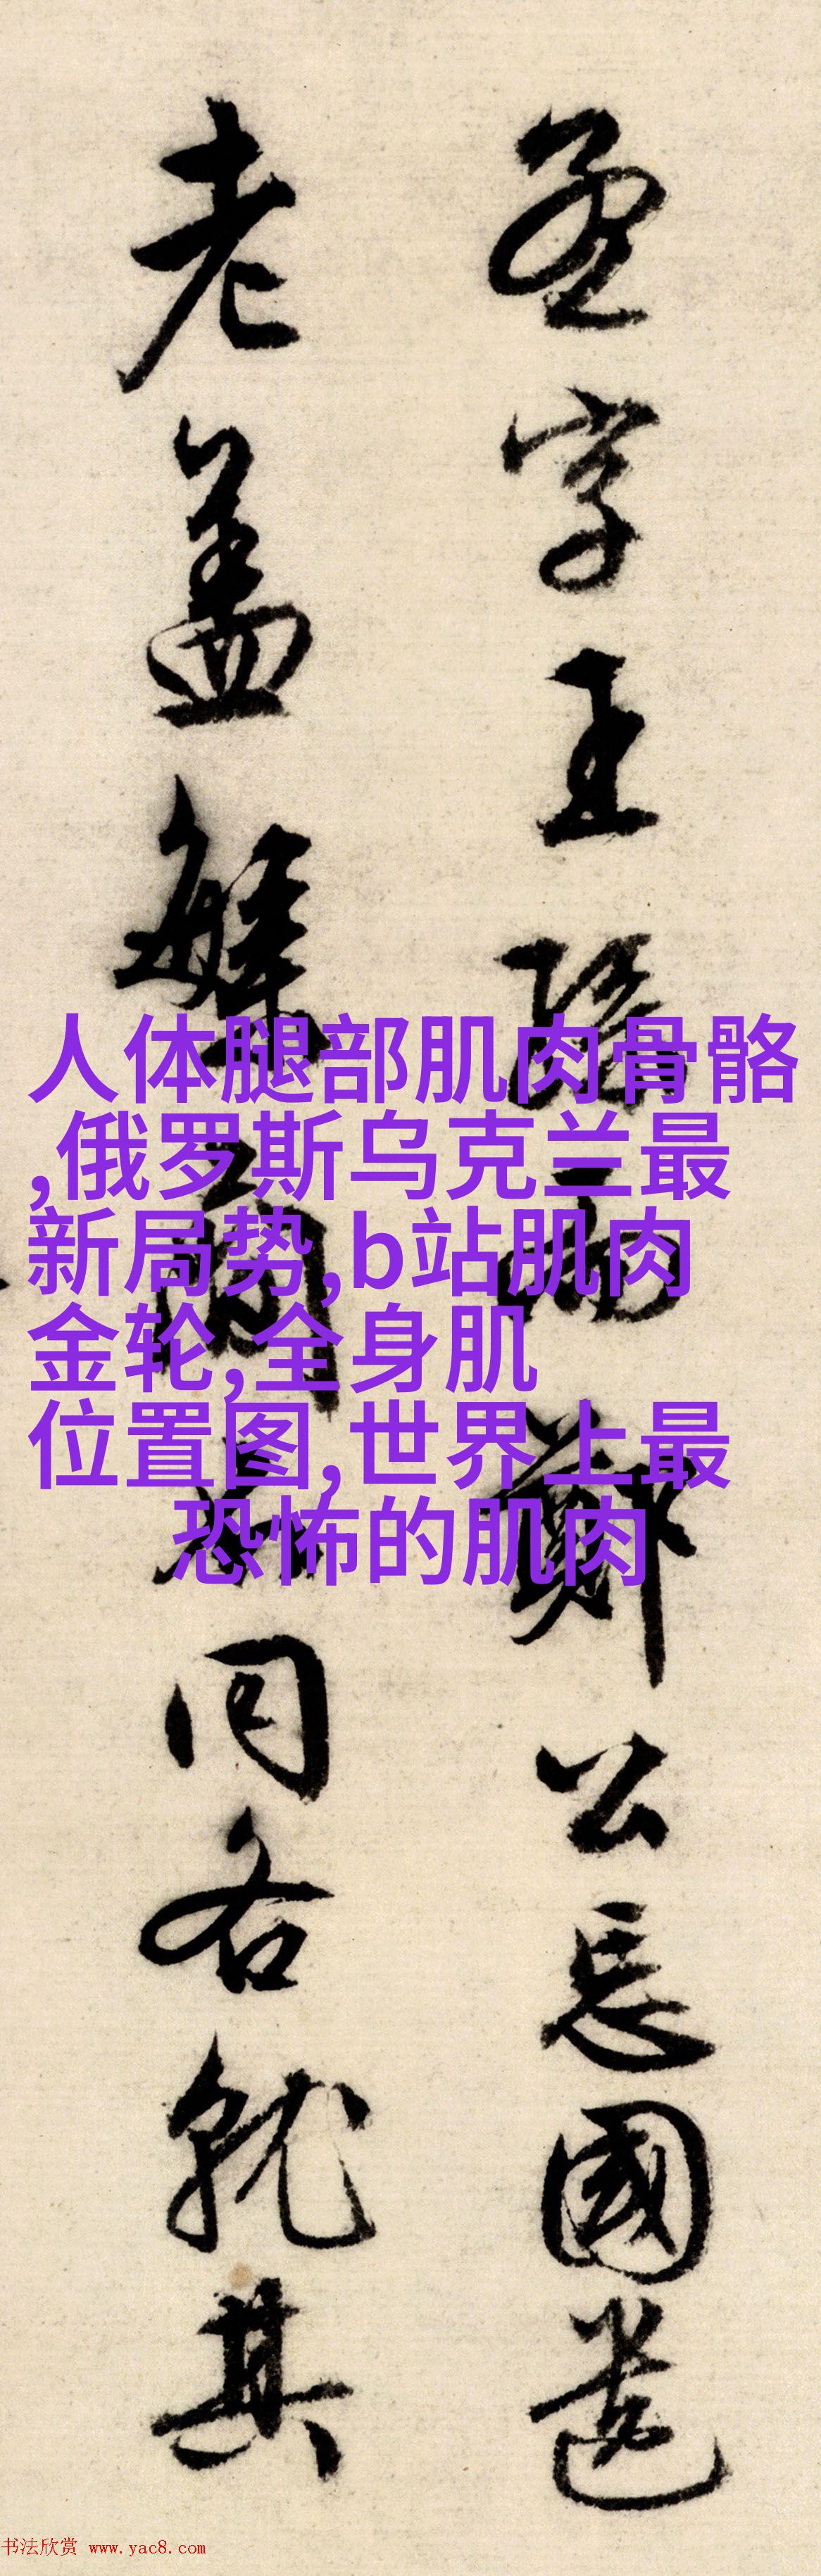 孟字王孫而鄭公忘國遺
老盖
同各就其
人体腿部肌肉骨骼
,俄罗斯乌克兰最
新局势,b站肌肉
金轮,全身肌
位置图,世界上最
恐怖的肌肉
书法欣赏 www.yac8.com